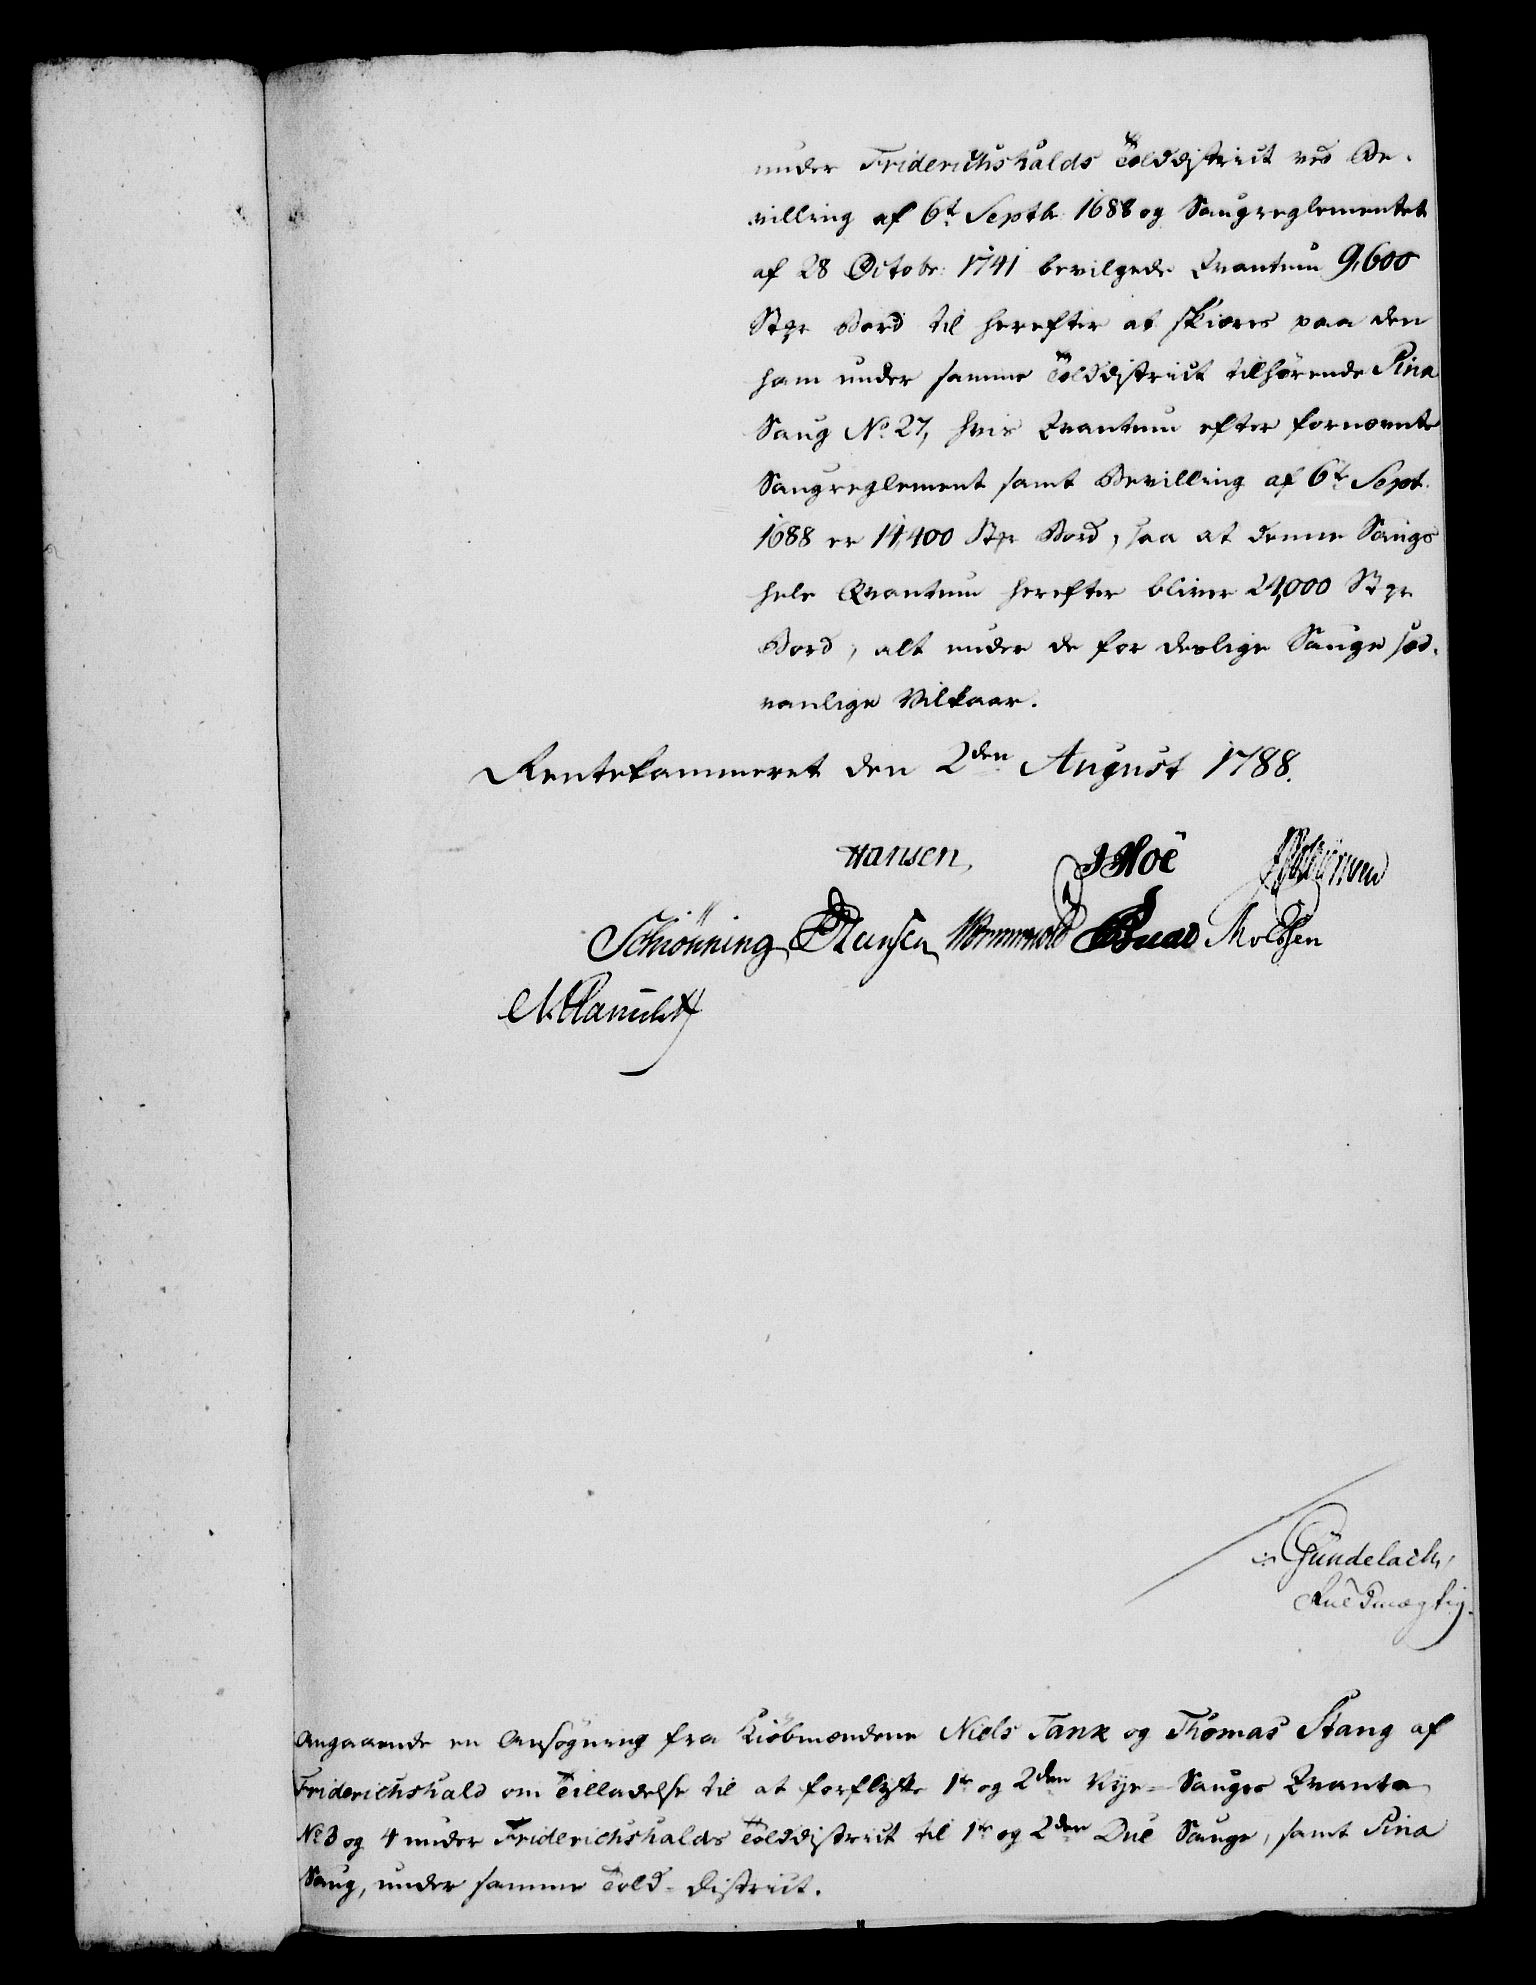 under Friderichshalds Tolddistrict ved Be-
villing af 6t Septbr 1688 og Saugreglementet
af 28 Octobr: 1741 bevilgede Qvantum 9,600
Stkr Bord til herefter at skiæres paa den
ham under samme Tolddistrict tilhørende Sina
Saug No 27, hvis Qvantum efter fornævnte
Saugreglement samt Bevilling af 6te Sept.
1688 er 14,400 Stkr Bord, saa at denne Saugs
hele Qvantum herefter bliver 24,000 Stkr
Bord, alt under de for deslige Sauge sæd-
vanlige Vilkaar.
Rentekammeret den 2den August 1788.
Hansen,
Schiönning Hansen
Gundelach,
Fuldmægtig.
Angaaende en Ansøgning fra Kiöbmændene Niels Tank og Thomas Stang af
Friderichshald om Tilladelse til at forflytte 1te og 2den Rye-Sauges Qvanta
No 3 og 4 under Friderichshalds Tolddistrict til 1te og 2den Due Sauge, samt Sina
Saug, under samme Told-District.